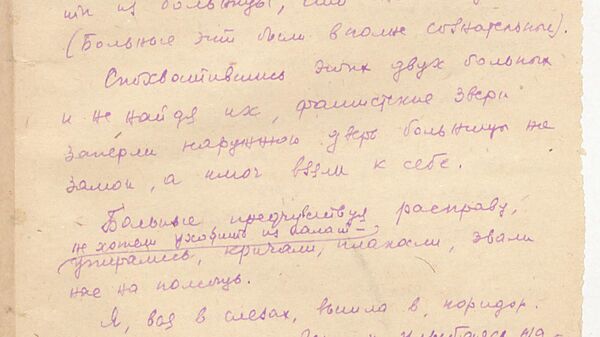 ти из больницы, или
(Больные эти были вполне сознательные).
Спохватившись этих двух больных
и не найдя их, фашистские звери
заперли наружную дверь больницы на
замок, а ключ взяли к себе.
Больные предчувствуя расправу,
не хотели уходить из палат –
упирались, кричали, плакали, звали
нас на помощь.
Я, вся в слезах, вышла в коридор.